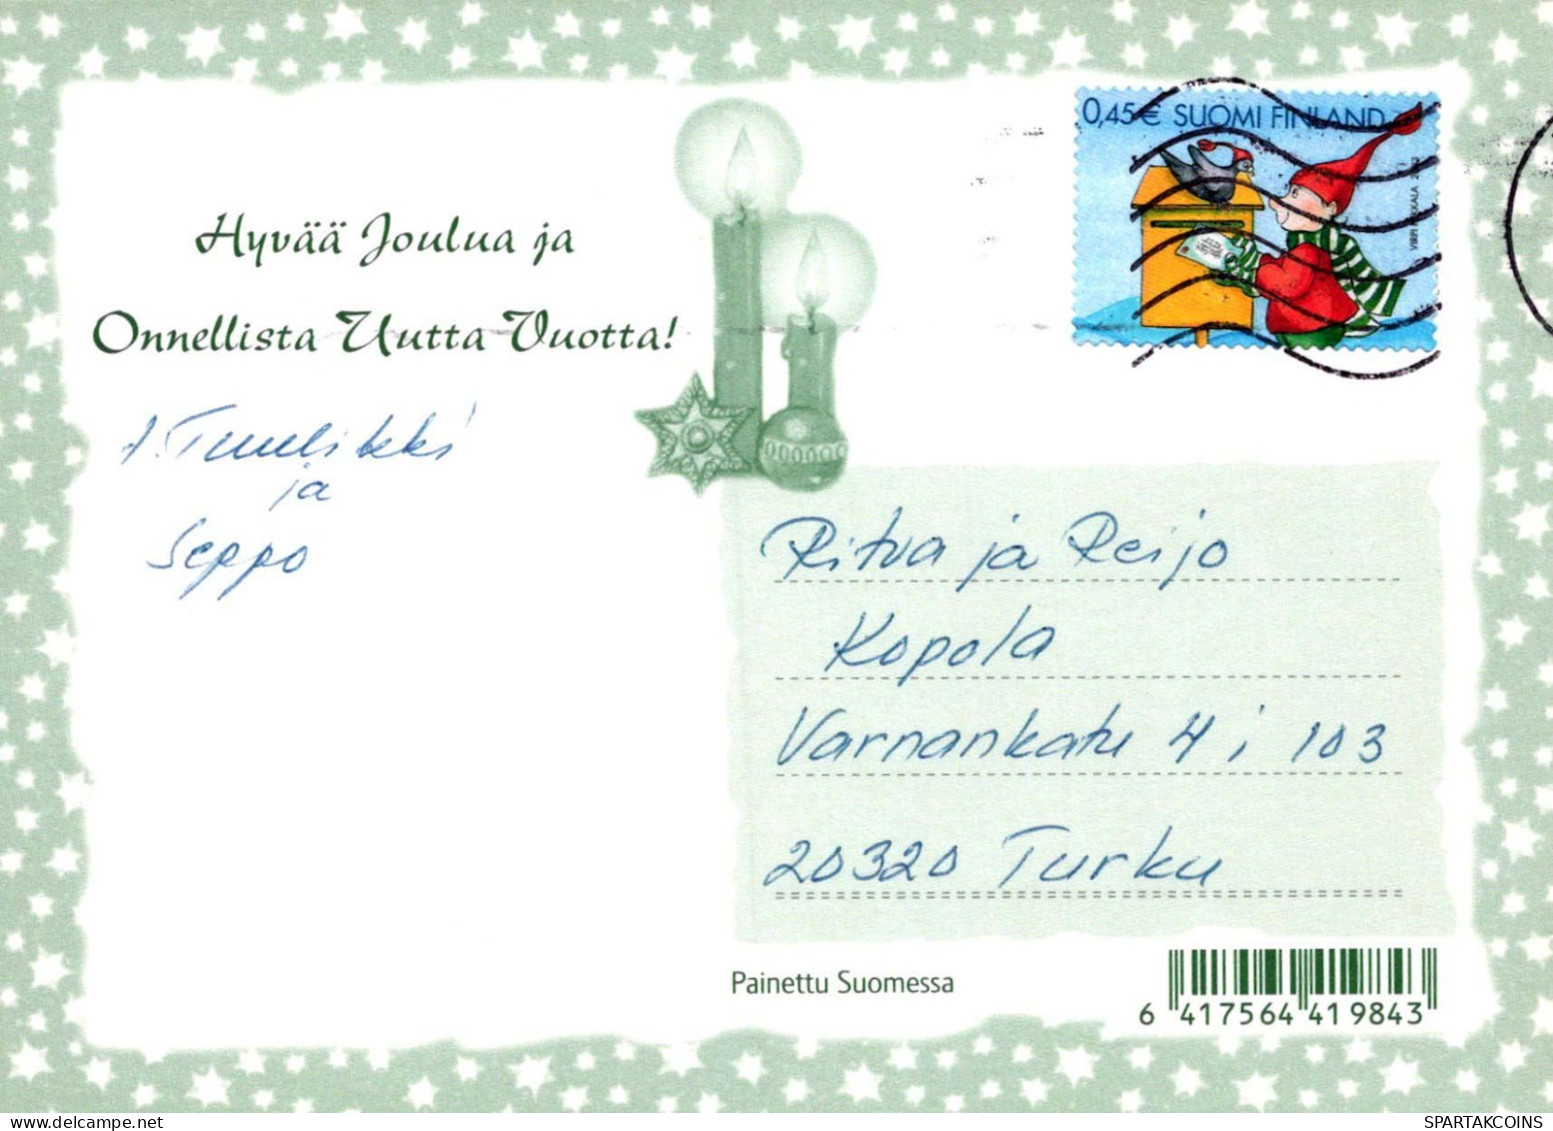 0,45€ SUOMI FINLAND
Hyvää Joulua ja
Onnellista Uutta Vuotta!
t. Tuulikki
ja
Seppo
Ritva ja Reijo
Kopola
Varnankatu 4 i 103
20320 Turku
Painettu Suomessa
6 417564 419843
SPARTAKCOINS